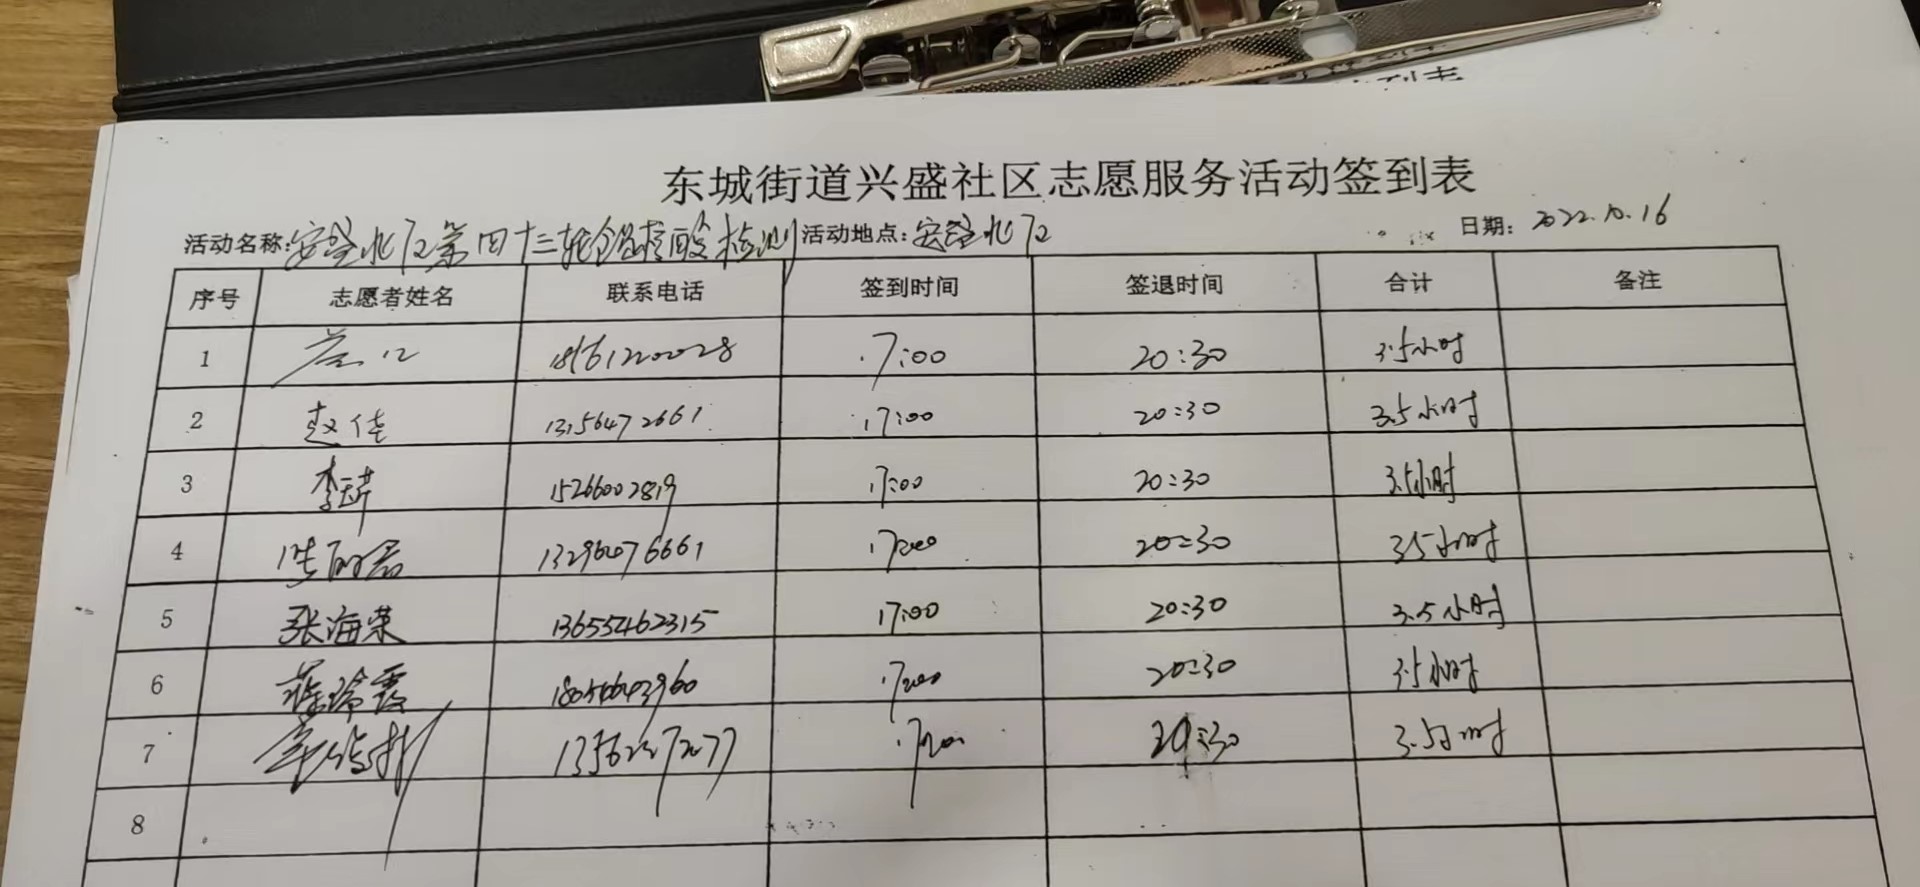 东城街道兴盛社区志愿服务活动签到表
活动名称:安盛北区第四十三轮全员核酸检测 活动地点:安盛北区 日期: 2022.10.16
序号 志愿者姓名 联系电话 签到时间 签退时间 合计 备注
1 17:00 20:30 3.5小时
2 赵佳 13156472661 17:00 20:30 3.5小时
3 15266002819 17:00 20:30 3.5小时
4 17:00 20:30 3.5小时
5 张海荣 13655462315 17:00 20:30 3.5小时
6 17:00 20:30 3.5小时
7 17:00 20:30 3.5小时
8